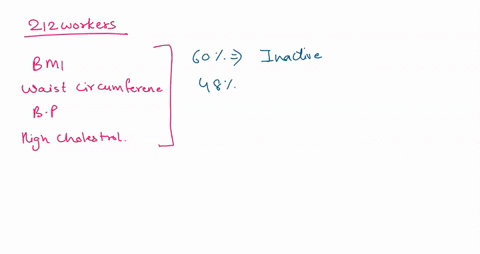 212 workers
BMI
Waist Circumferene
B.P
High Cholestrol.
60% ⇒ Inactive
48%